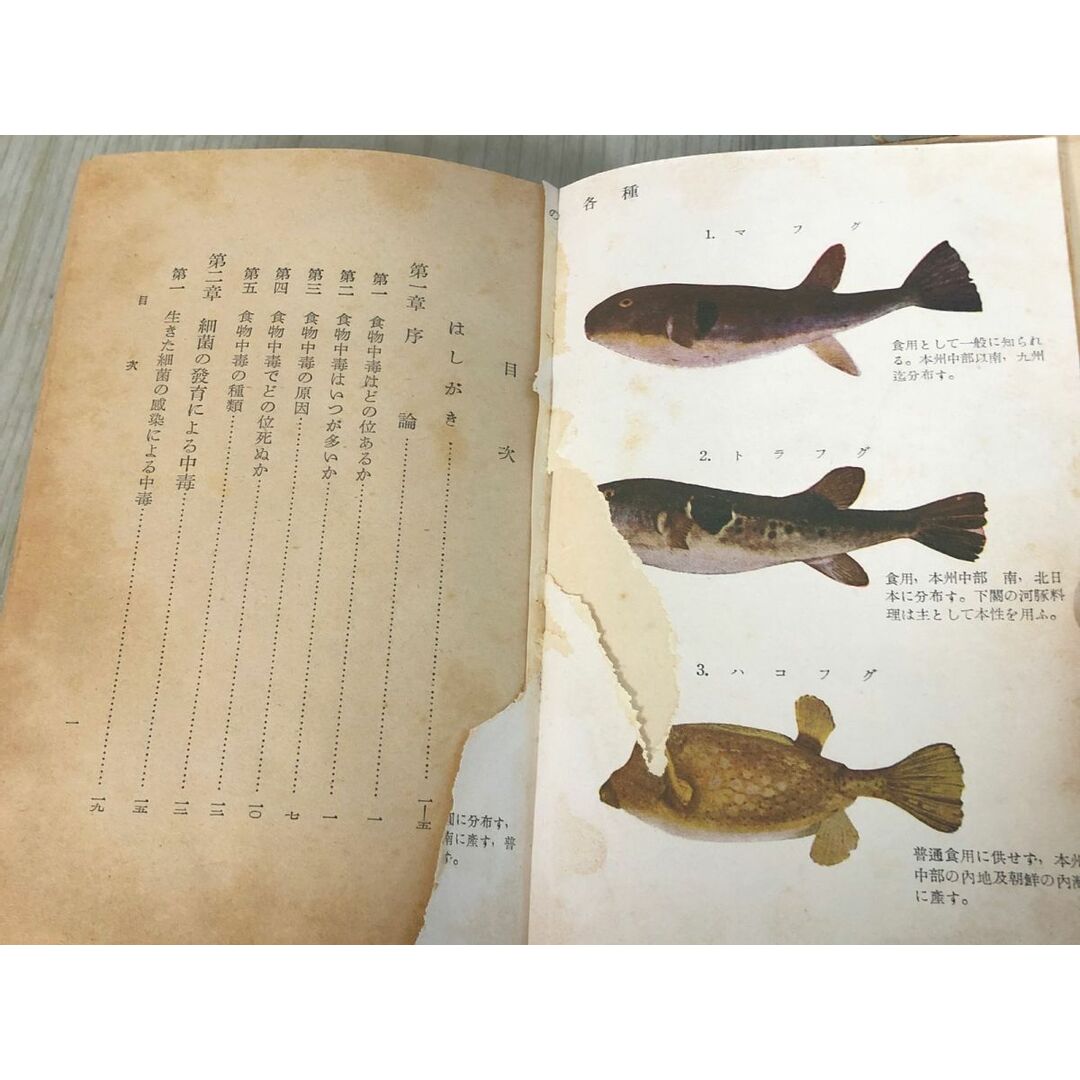 の各種
1. マフグ
食用として一般に知られ
る。本州中部以南，九州
迄分布す。
2. トラフグ
食用，本州中部 南，北日
本に分布す。下關の河豚料
理は主として本性を用ふ。
3. ハコフグ
普通食用に供せず，本州
中部の內地及朝鮮の內海
に產す。
目次
はしがき……一—五
第一章 序論……一
第一 食物中毒はどの位あるか……一
第二 食物中毒はいつが多いか……七
第三 食物中毒の原因……一〇
第四 食物中毒でどの位死ぬか……一二
第五 食物中毒の種類……一二
第二章 細菌の發育による中毒……一五
第一 生きた細菌の感染による中毒……一九
目次
一
に分布す，
南に產す，普
す。